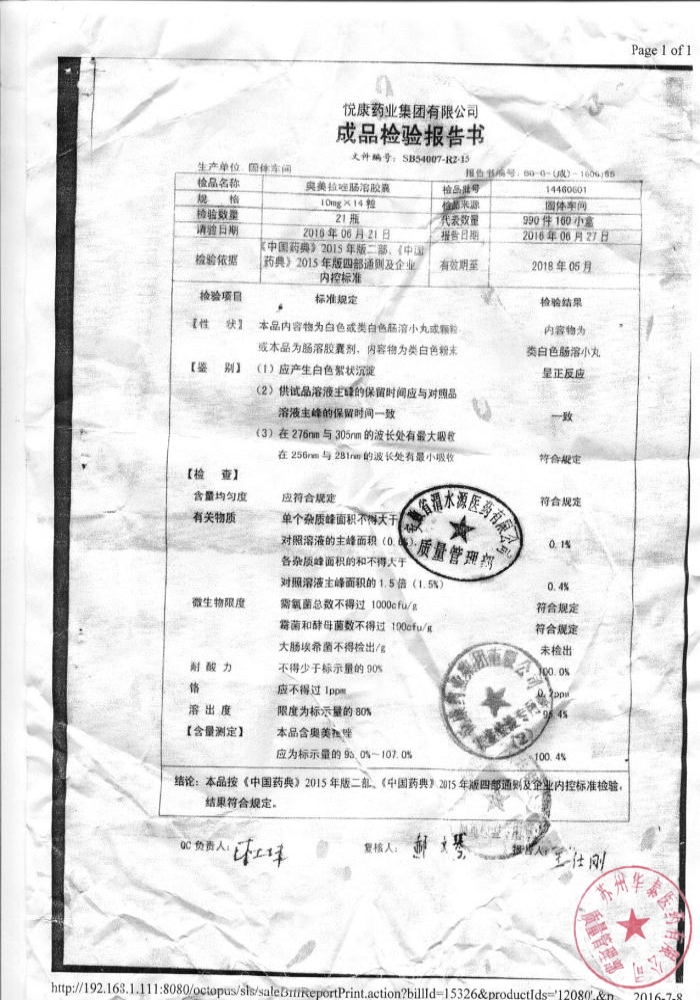 Page 1 of 1
悦康药业集团有限公司
成品检验报告书
文件编号：SB54007-R2-15
生产单位：固体车间 报告书编号：
检品名称 奥美拉唑肠溶胶囊 检品批号 14460601
规 格 10mg×14粒 检品来源 固体车间
检验数量 21瓶 代表数量 990件160小盒
请验日期 2016年06月21日 报告日期 2016年06月27日
检验依据 《中国药典》2015年版二部、《中国药典》2015年版四部通则及企业内控标准 有效期至 2018年05月
检验项目 标准规定 检验结果
【性 状】 本品内容物为白色或类白色肠溶小丸或颗粒 内容物为
或本品为肠溶胶囊剂，内容物为类白色粉末 类白色肠溶小丸
【鉴 别】 （1）应产生白色絮状沉淀 呈正反应
（2）供试品溶液主峰的保留时间应与对照品
溶液主峰的保留时间一致 一致
（3）在276nm与305nm的波长处有最大吸收
在256nm与281nm的波长处有最小吸收 符合规定
【检 查】
含量均匀度 应符合规定 符合规定
有关物质 单个杂质峰面积不得大于
对照溶液的主峰面积 0.1%
各杂质峰面积的和不得大于
对照溶液主峰面积的1.5倍（1.5%） 0.4%
微生物限度 需氧菌总数不得过 1000cfu/g 符合规定
霉菌和酵母菌数不得过 100cfu/g 符合规定
大肠埃希菌不得检出/g 未检出
耐酸力 不得少于标示量的90% 100.0%
铬 应不得过1ppm 0.2ppm
溶出度 限度为标示量的80%
【含量测定】 本品含奥美拉唑
应为标示量的95.0%~107.0% 100.4%
结论：本品按《中国药典》2015年版二部、《中国药典》2015年版四部通则及企业内控标准检验，
结果符合规定。
QC负责人： 复核人： 报告人：
安徽省渭水源医药有限公司
质量管理部
苏州华泰医药有限公司
http://192.168.1.111:8080/octopus/sls/saleBillReportPrint.action?billId=15326&productIds='12080'&n 2016-7-8